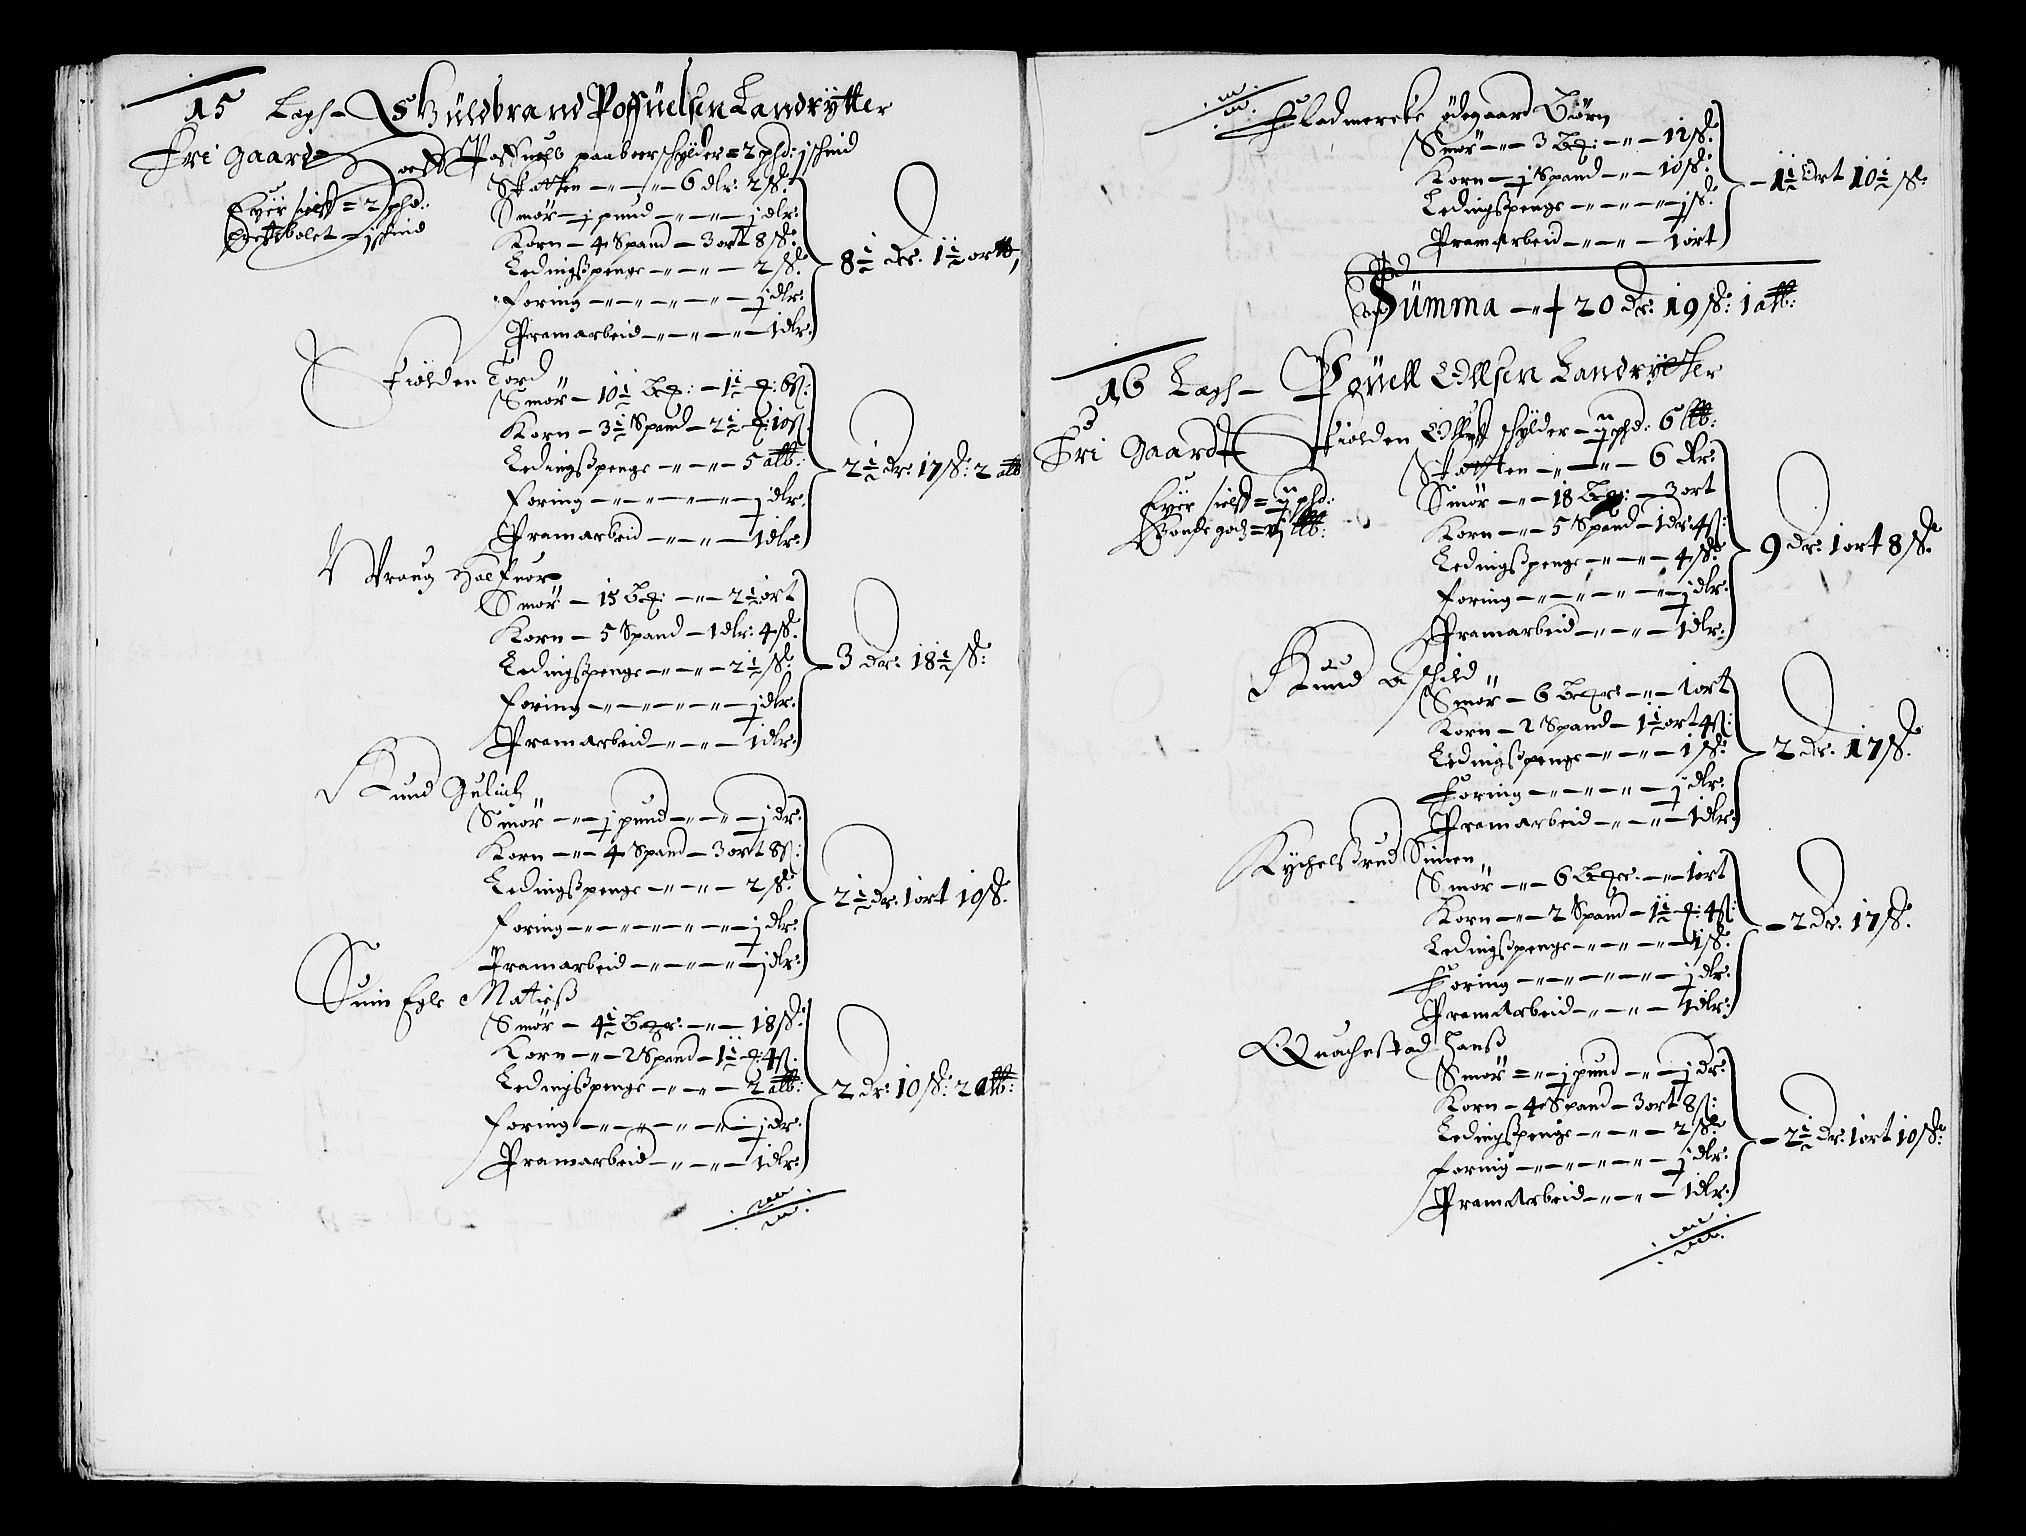 15 Legh - Guldbrand Possuelsen Landrytter
Fri Gaard
Possuels paaboer schylder = 2 phd: j scheid
Eyer sielff = 2 phd:
j scheid
Skatten - - - 6 dlr: 2 ß:
Smør - j pund - - j dlr:
Korn - 4 Spand - 3 ort 8 ß:
Ledingspenge - - - 2 ß:
Foring - - - - j dlr:
Pramarbeid - - - 1 dlr:
8½ dr. 1½ ortt,
Fiølden Tord
Smør - 10½ - 1½ 6ß:
Korn - 3½ Spand - 2½ 10ß
Ledingspenge - - - 5 alb:
Foring - - - - j dlr:
Pramarbeid - - - 1 dlr:
2½ dr: 17 ß: 2 alb
Smør - 15 - 2½ ort
Korn - 5 Spand - 1 dlr: 4 ß.
Ledingspenge - - - 2½ ß:
Foring - - - - j dlr:
Pramarbeid - - - 1 dlr:
3 dr: 18½ ß:
Rund Gulich
Smør - - j pund - - j dr:
Korn - - 4 Spand - 3 ort 8ß:
Ledingspenge - - - 2 ß:
Foring - - - - j dlr:
Pramarbeid - - - j dlr:
2½ dr. 1 ort 10 ß.
Matiss
Smør - 4½ - 18 ß:
Korn - - 2 Spand - 1½ 4ß:
Ledingspenge - - - 2 alb:
Foring - - - - j dr:
Pramarbeid - - - 1 dlr:
2 dr: 10 ß: 2 alb:
Fladmercke ødegaard Biørn
Smør - - 3 - - 12 ß:
Korn - j Spand - - 10 ß:
Ledingspenge - - - j ß.
Pramarbeid - - - 1 ort
- 1½ ort 10½ ß:
Summa - 20 dr: 19 ß: 1 alb:
16 Legh - Pouell Ollsen Landrytter
Fri Gaardt
Fiølden Olluff schylder - phd: 6 ltb:
Eyer sielff = phd:
Skatten - - - 6 dlr:
Smør - - 18 - 3 ort
Korn - - 5 Spand - 1 dr: 4ß:
Ledingspenge - - - 4 ß:
Foring - - - - j dlr:
Pramarbeid - - - 1 dlr:
9 dr: 1 ort 8 ß.
Rund Aschild
Smør - 6 - - 1 ort
Korn - 2 Spand - 1½ ort 4ß:
Ledingspenge - - - 1 ß:
Foring - - - - j dlr:
Pramarbeid - - - 1 dlr:
2 dr. 17 ß.
Kychelsrud Simen
Smør - - 6 - - 1 ort
Korn - - 2 Spand - 1½ 4ß:
Ledingspenge - - - 1 ß:
Foring - - - - j dlr:
Pramarbeid - - - 1 dlr:
- 2 dr. 17 ß.
Quachestad Hanss
Smør = - j pund - - j dr:
Korn - 4 Spand - 3 ort 8ß:
Ledingspenge - - - 2 ß:
Foring - - - - j dlr:
Pramarbeid - - - 1 dlr:
- 2½ dr: 1 ort 10 ß: